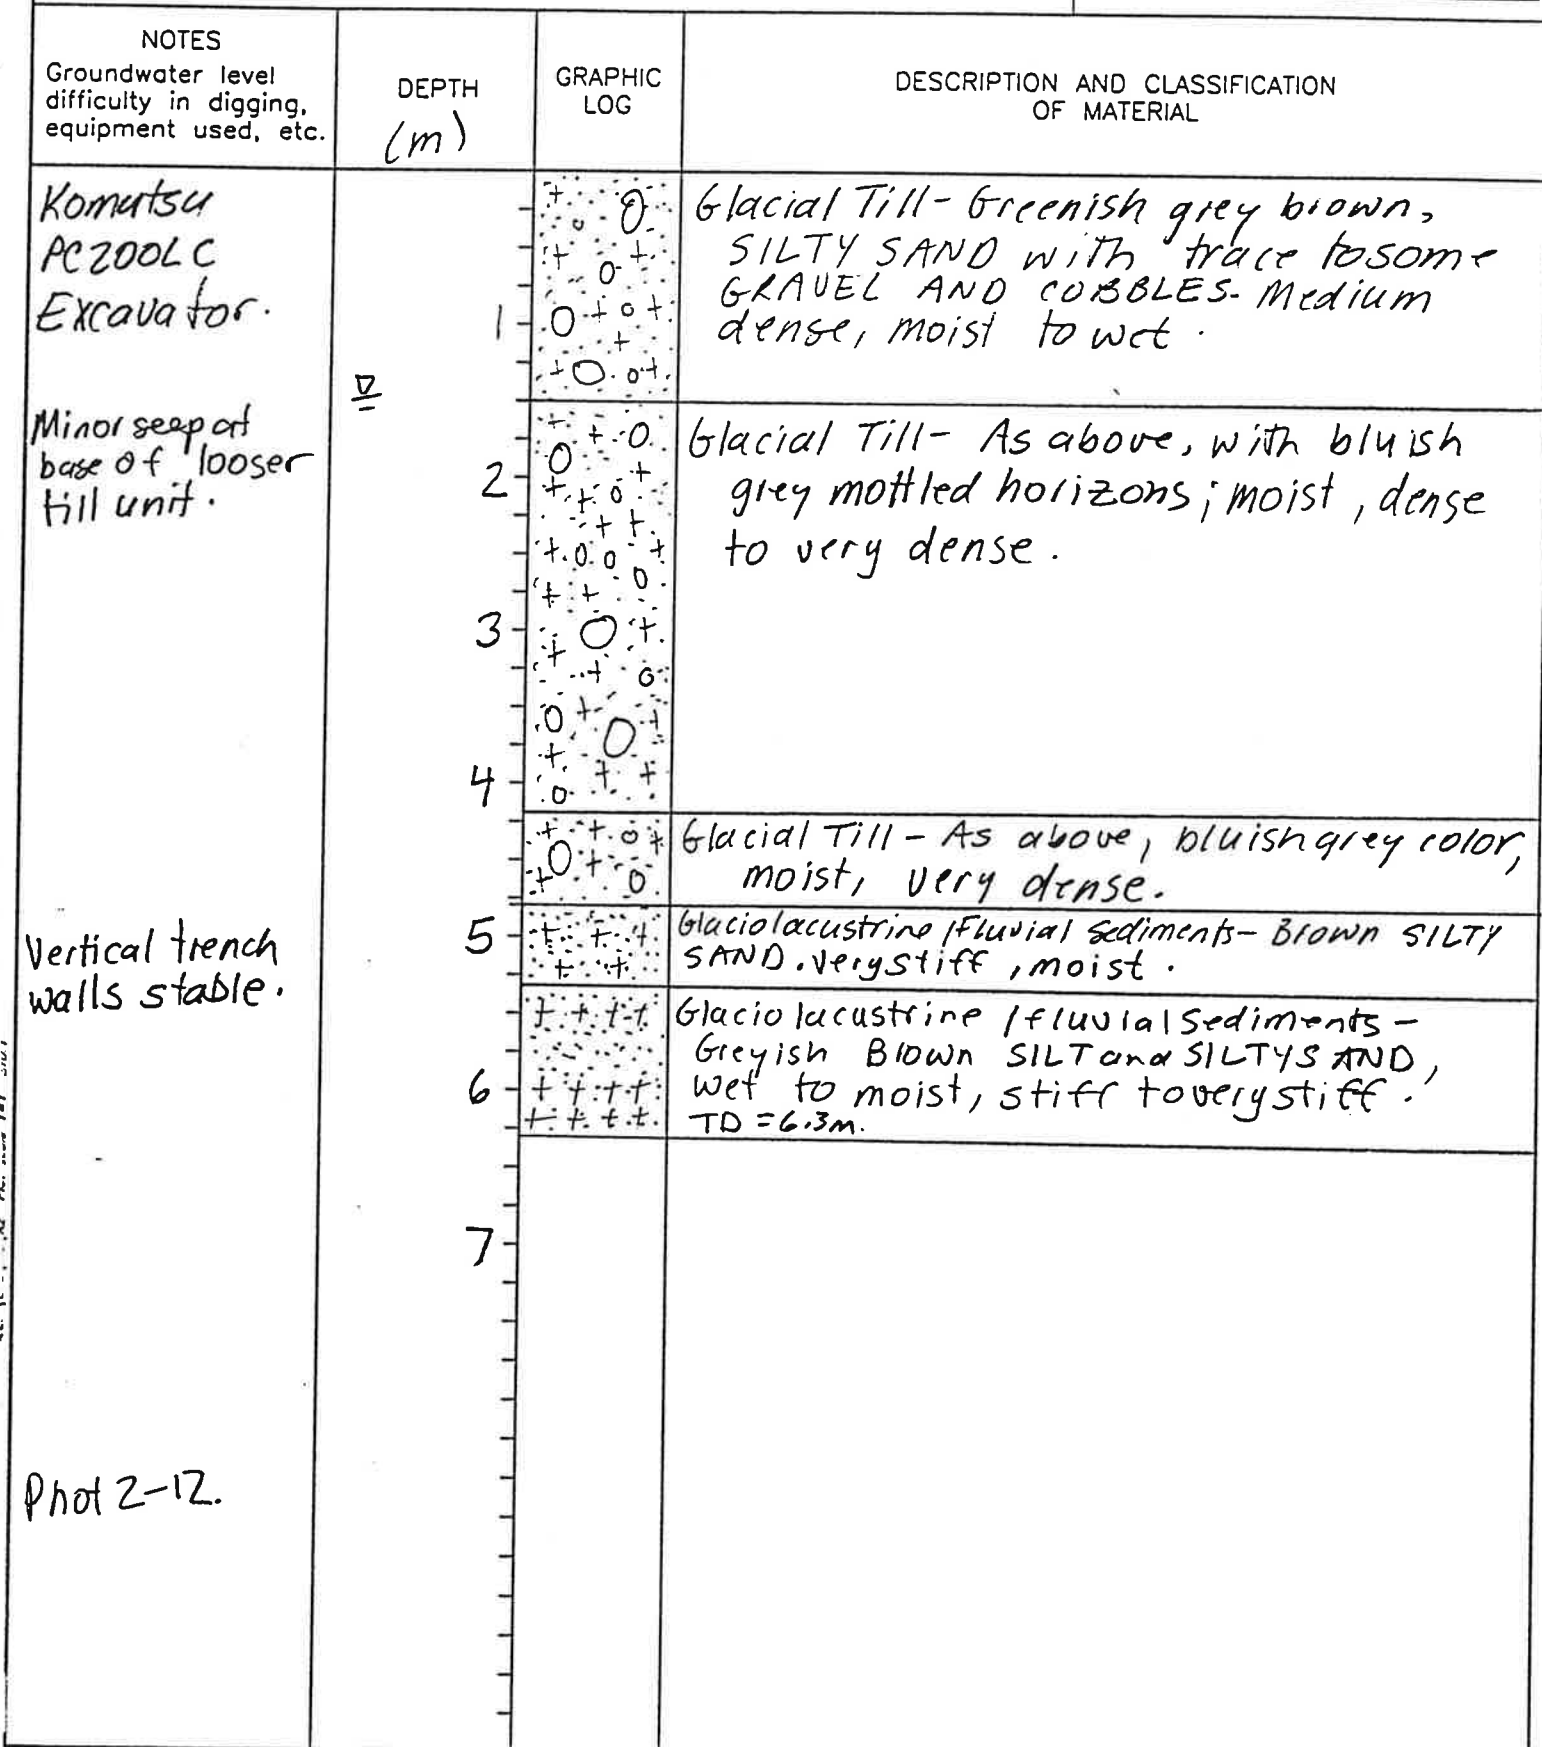 NOTES
Groundwater level
difficulty in digging,
equipment used, etc.
DEPTH
(m)
GRAPHIC
LOG
DESCRIPTION AND CLASSIFICATION
OF MATERIAL
Komatsu
PC200LC
Excavator.
Minor seep at
base of looser
till unit.
Vertical trench
walls stable.
Phot 2-12.
1
2
3
4
5
6
7
Glacial Till- Greenish grey brown,
SILTY SAND with trace to some
GRAVEL AND COBBLES. Medium
dense, moist to wet.
Glacial Till- As above, with bluish
grey mottled horizons; moist, dense
to very dense.
Glacial Till - As above, bluish grey color,
moist, very dense.
Glaciolacustrine/Fluvial Sediments- Brown SILTY
SAND. very stiff, moist.
Glacio lacustrine/fluvial Sediments-
Greyish Brown SILT and SILTY SAND,
wet to moist, stiff to very stiff.
TD = 6.3m.